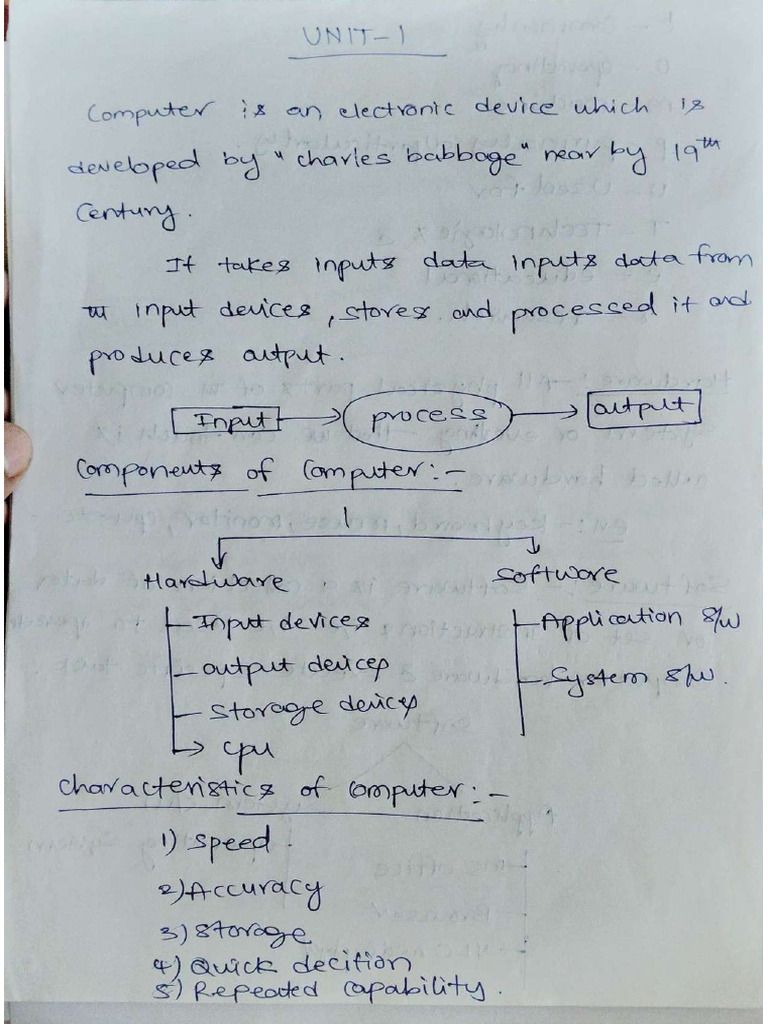 UNIT-1
Computer is an electronic device which is
developed by "charles babbage" near by 19th
Century.
It takes inputs data inputs data from
input devices, stores and processed it and
produces output.
Input process output
Components of Computer:-
Hardware Software
Input devices Application s/w
output devices System s/w.
Storage devices
cpu
Characteristics of Computer:-
1) Speed.
2) Accuracy
3) Storage
4) Quick decition
5) Repeated capability.